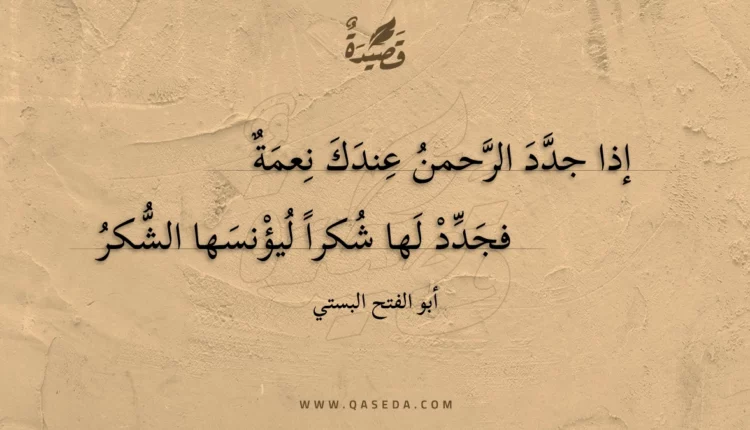 قَصِيْدَةٌ
إذا جدَّدَ الرَّحمنُ عِندَكَ نِعمَةٌ
فجَدِّدْ لَها شُكراً لُيؤْنسَها الشُّكرُ
أبو الفتح البستي
WWW.QASEDA.COM